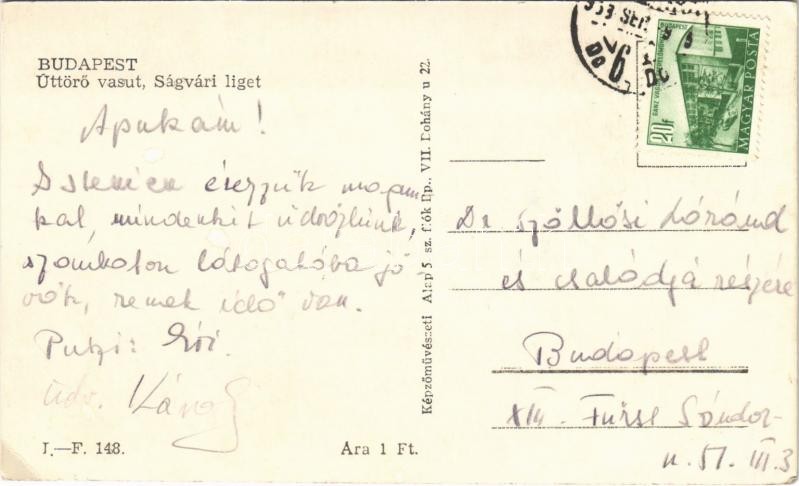 BUDAPEST
Úttörő vasut, Ságvári liget
Apukám!
érezzük magun
kat, mindenkit üdvözlünk,
szombaton látogatóba jö
vök, remek idő van.
Puszi:
Üdv. Károly
I.—F. 148.
Ára 1 Ft.
Képzőművészeti Alap 5. sz. fiók Bp., VII. Dohány u 22.
953 SEP
20f
MAGYAR POSTA
Dr Szöllősi Lóránd
és családja részére
Budapest
XIII. Fürst Sándor-
u. 51. III. 3